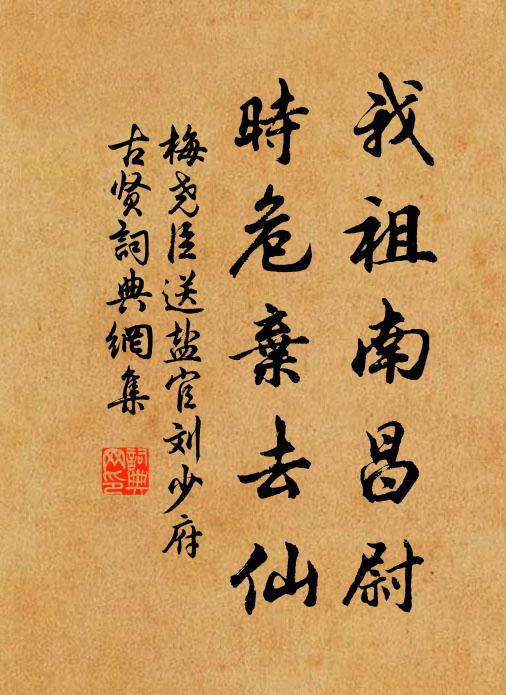 我祖南昌尉
時危棄去仙
梅尧臣送盐官刘少府
古贤詞典網集
詞典網印